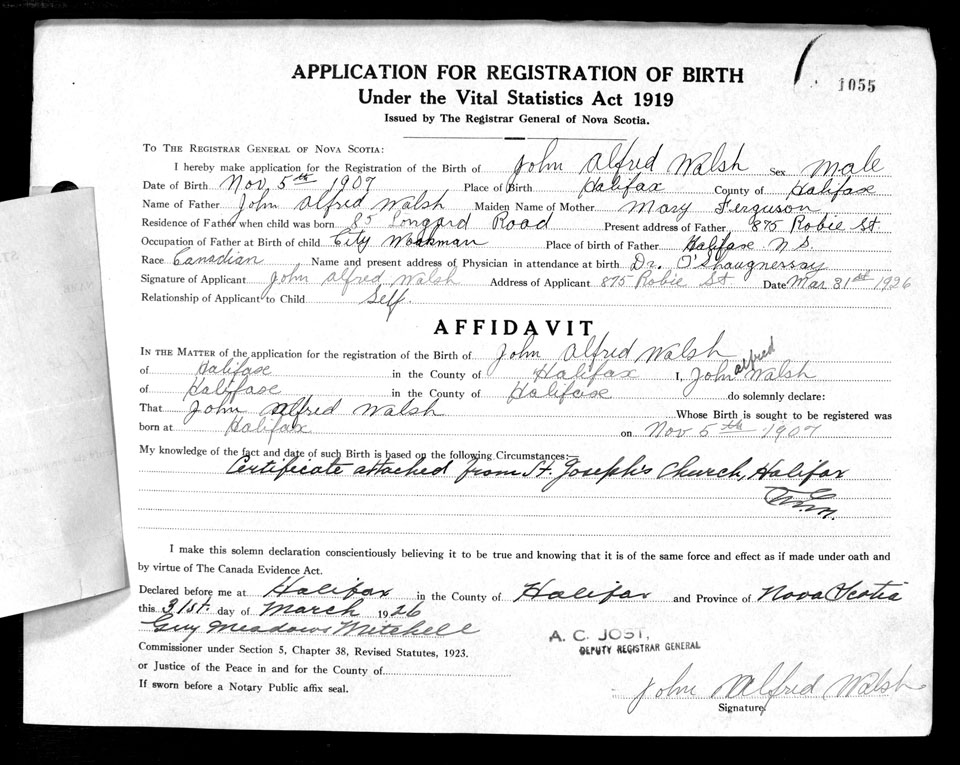 1055
APPLICATION FOR REGISTRATION OF BIRTH
Under the Vital Statistics Act 1919
Issued by The Registrar General of Nova Scotia.
To The Registrar General of Nova Scotia:
I hereby make application for the Registration of the Birth of John Alfred Walsh Sex Male
Date of Birth Nov 5th 1907 Place of Birth Halifax County of Halifax
Name of Father John Alfred Walsh Maiden Name of Mother Mary Ferguson
Residence of Father when child was born 85 Longard Road Present address of Father 875 Robie St.
Occupation of Father at Birth of child City Workman Place of birth of Father Halifax N.S.
Race Canadian Name and present address of Physician in attendance at birth Dr. O'Shaugnessay
Signature of Applicant John Alfred Walsh Address of Applicant 875 Robie St Date Mar 31st 1926
Relationship of Applicant to Child Self.
AFFIDAVIT
In the Matter of the application for the registration of the Birth of John Alfred Walsh
of Halifax in the County of Halifax I, John Alfred Walsh
of Halifax in the County of Halifax do solemnly declare:
That John Alfred Walsh Whose Birth is sought to be registered was
born at Halifax on Nov 5th 1907
My knowledge of the fact and date of such Birth is based on the following Circumstances:
Certificate attached from St. Joseph's Church, Halifax
I make this solemn declaration conscientiously believing it to be true and knowing that it is of the same force and effect as if made under oath and
by virtue of The Canada Evidence Act.
Declared before me at Halifax in the County of Halifax and Province of Nova Scotia
this 31st. day of March 1926
Guy Meadows Mitchell
A. C. JOST,
DEPUTY REGISTRAR GENERAL
Commissioner under Section 5, Chapter 38, Revised Statutes, 1923.
or Justice of the Peace in and for the County of
If sworn before a Notary Public affix seal.
John Alfred Walsh
Signature.